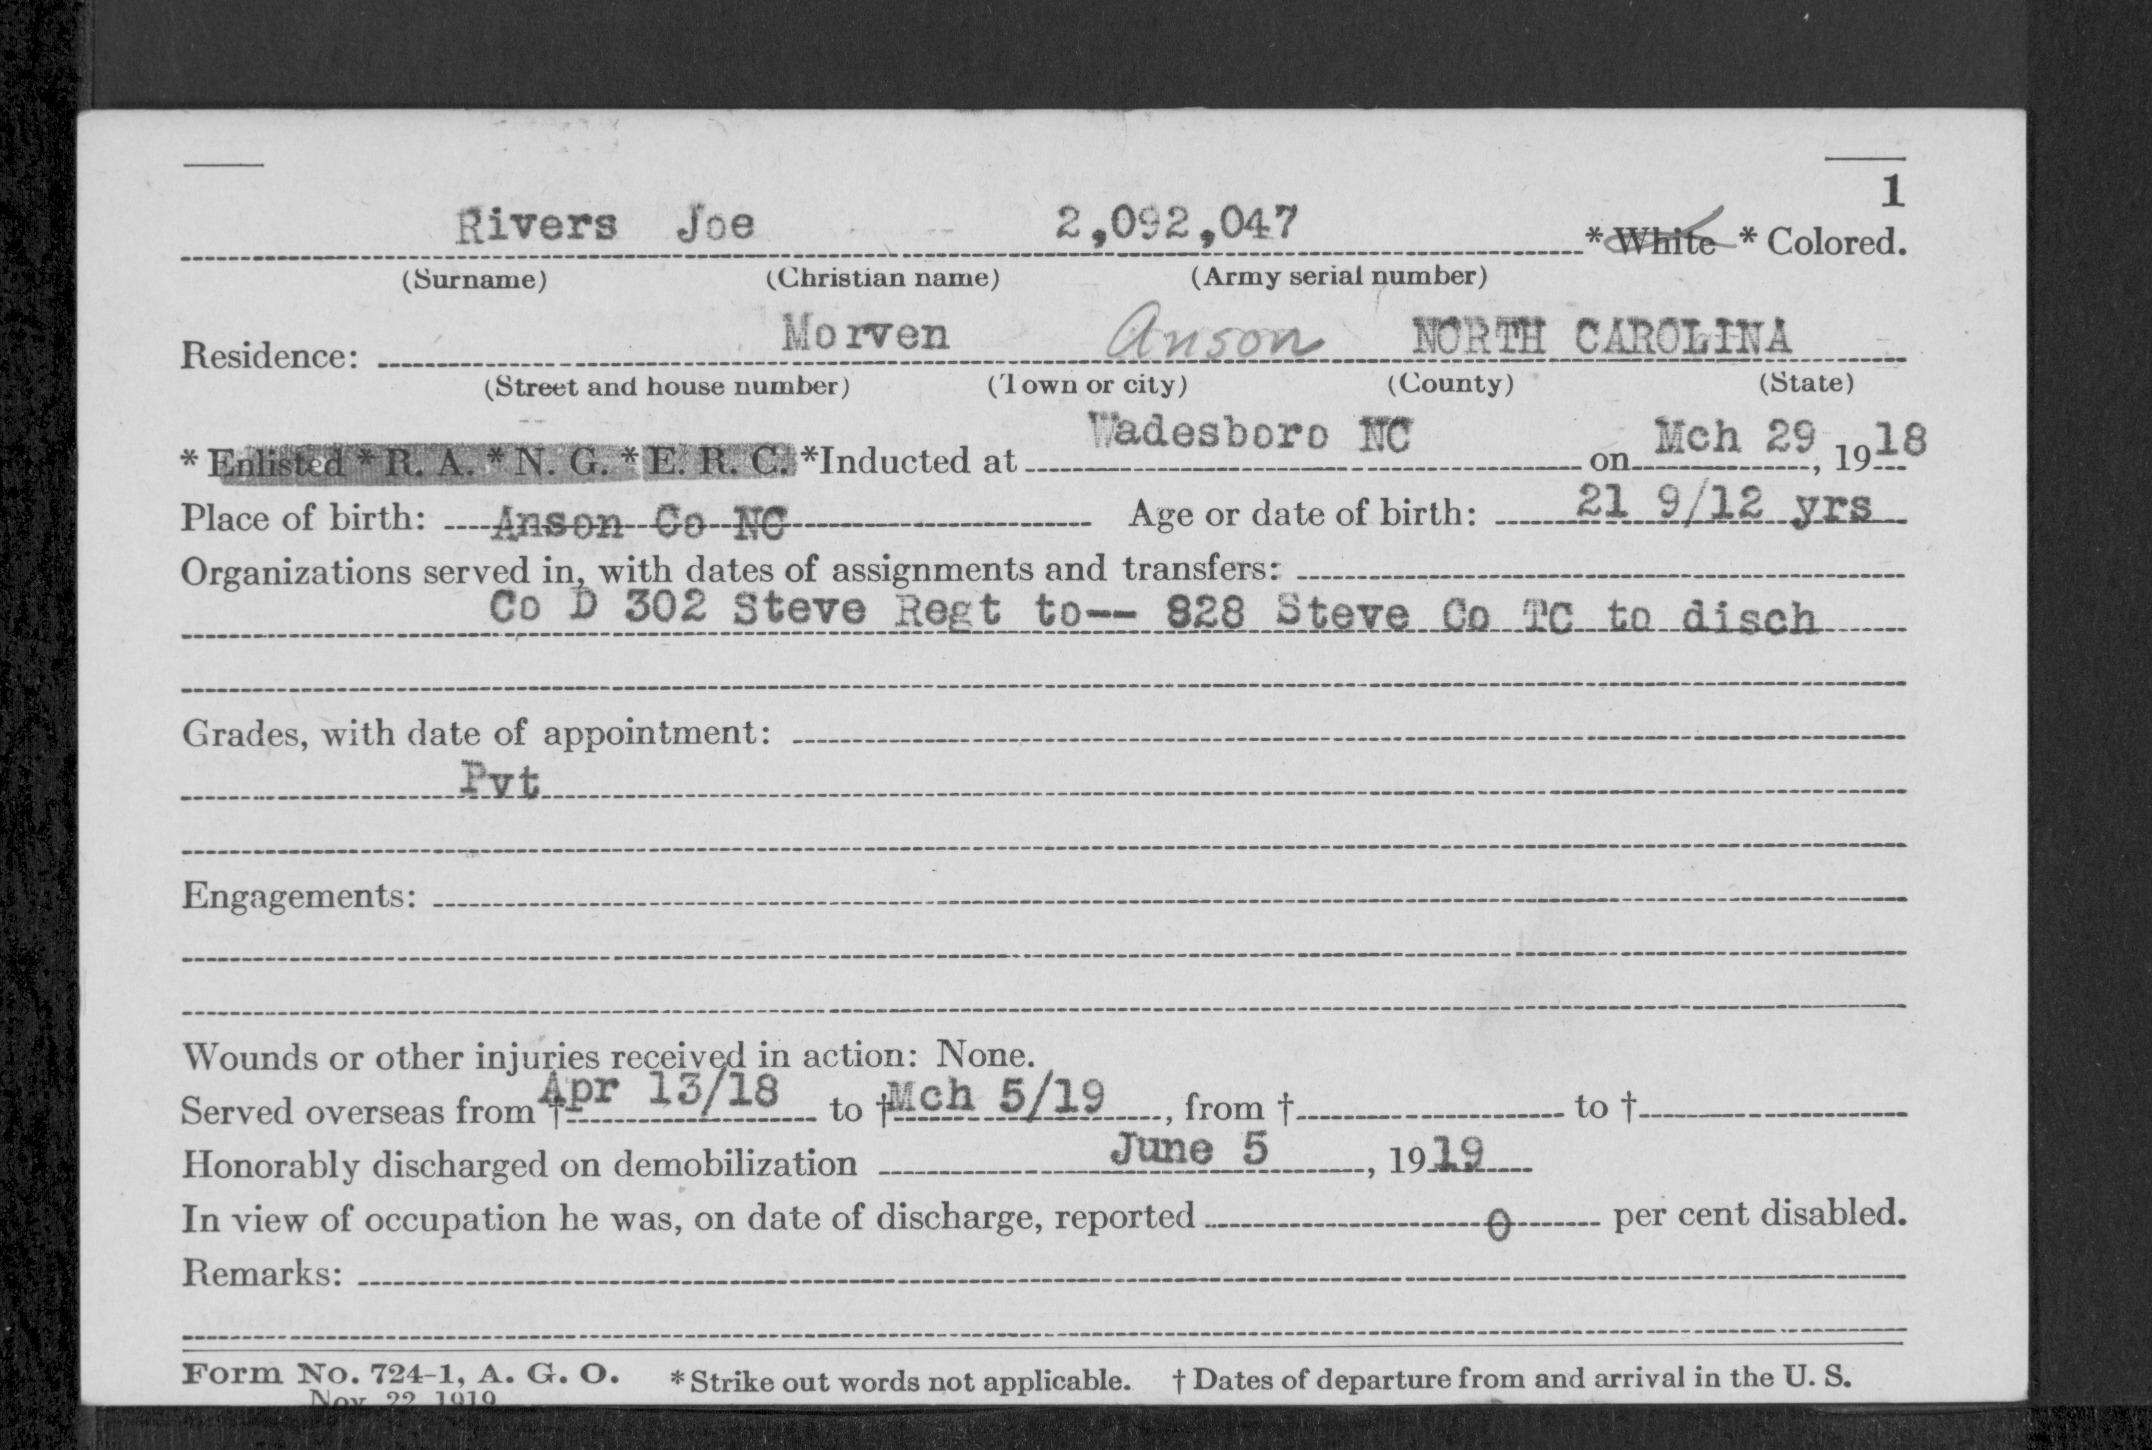 1
Rivers Joe 2,092,047 * White * Colored.
(Surname) (Christian name) (Army serial number)
Residence: Morven Anson NORTH CAROLINA
(Street and house number) (Town or city) (County) (State)
* Enlisted * R. A. * N. G. * E. R. C. *Inducted at Wadesboro NC on Mch 29, 1918
Place of birth: Anson Co NC Age or date of birth: 21 9/12 yrs
Organizations served in, with dates of assignments and transfers:
Co D 302 Steve Regt to-- 828 Steve Co TC to disch
Grades, with date of appointment:
Pvt
Engagements:
Wounds or other injuries received in action: None.
Served overseas from † Apr 13/18 to † Mch 5/19, from † to †
Honorably discharged on demobilization June 5, 1919
In view of occupation he was, on date of discharge, reported 0 per cent disabled.
Remarks:
Form No. 724-1, A. G. O. * Strike out words not applicable. † Dates of departure from and arrival in the U. S.
Nov. 22, 1919